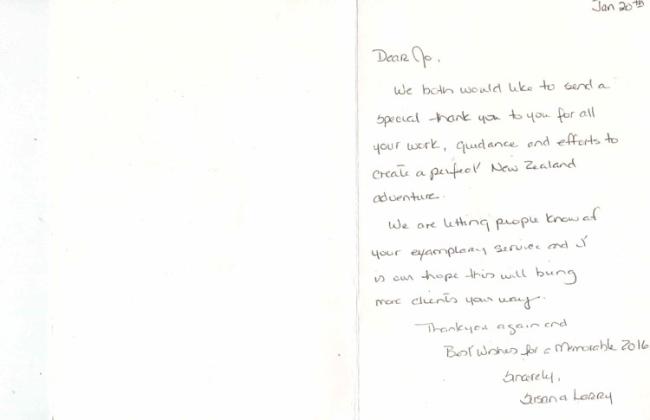 Jan 20th
Dear Jo,
We both would like to send a
special thank you to you for all
your work, guidance and efforts to
create a perfect New Zealand
adventure.
We are letting people know of
your examplary service and it
is our hope this will bring
more clients your way.
Thankyou again and
Best Wishes for a Memorable 2016
Sincerely,
Susan & Larry